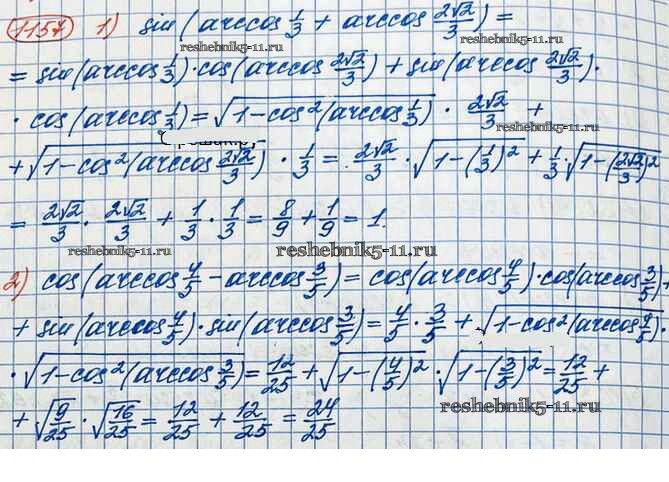 1157 1) sin(arccos 1/3 + arccos 2√2/3) =
reshebnik5-11.ru
= sin(arccos 1/3)·cos(arccos 2√2/3) + sin(arccos 2√2/3)·
reshebnik5-11.ru
· cos(arccos 1/3) = √(1-cos²(arccos 1/3)) · 2√2/3 +
reshebnik5-11.ru
+ √(1-cos²(arccos 2√2/3)) · 1/3 = 2√2/3 · √(1-(1/3)²) + 1/3·√(1-(2√2/3)²)
= 2√2/3 · 2√2/3 + 1/3 · 1/3 = 8/9 + 1/9 = 1.
reshebnik5-11.ru
2) cos(arccos 4/5 - arccos 3/5) = cos(arccos 4/5)·cos(arccos 3/5)+
+ sin(arccos 4/5)·sin(arccos 3/5) = 4/5 · 3/5 + √(1-cos²(arccos 4/5))·
reshebnik5-11.ru
· √(1-cos²(arccos 3/5)) = 12/25 + √(1-(4/5)²) · √(1-(3/5)²) = 12/25 +
+ √(9/25) · √(16/25) = 12/25 + 12/25 = 24/25
reshebnik5-11.ru